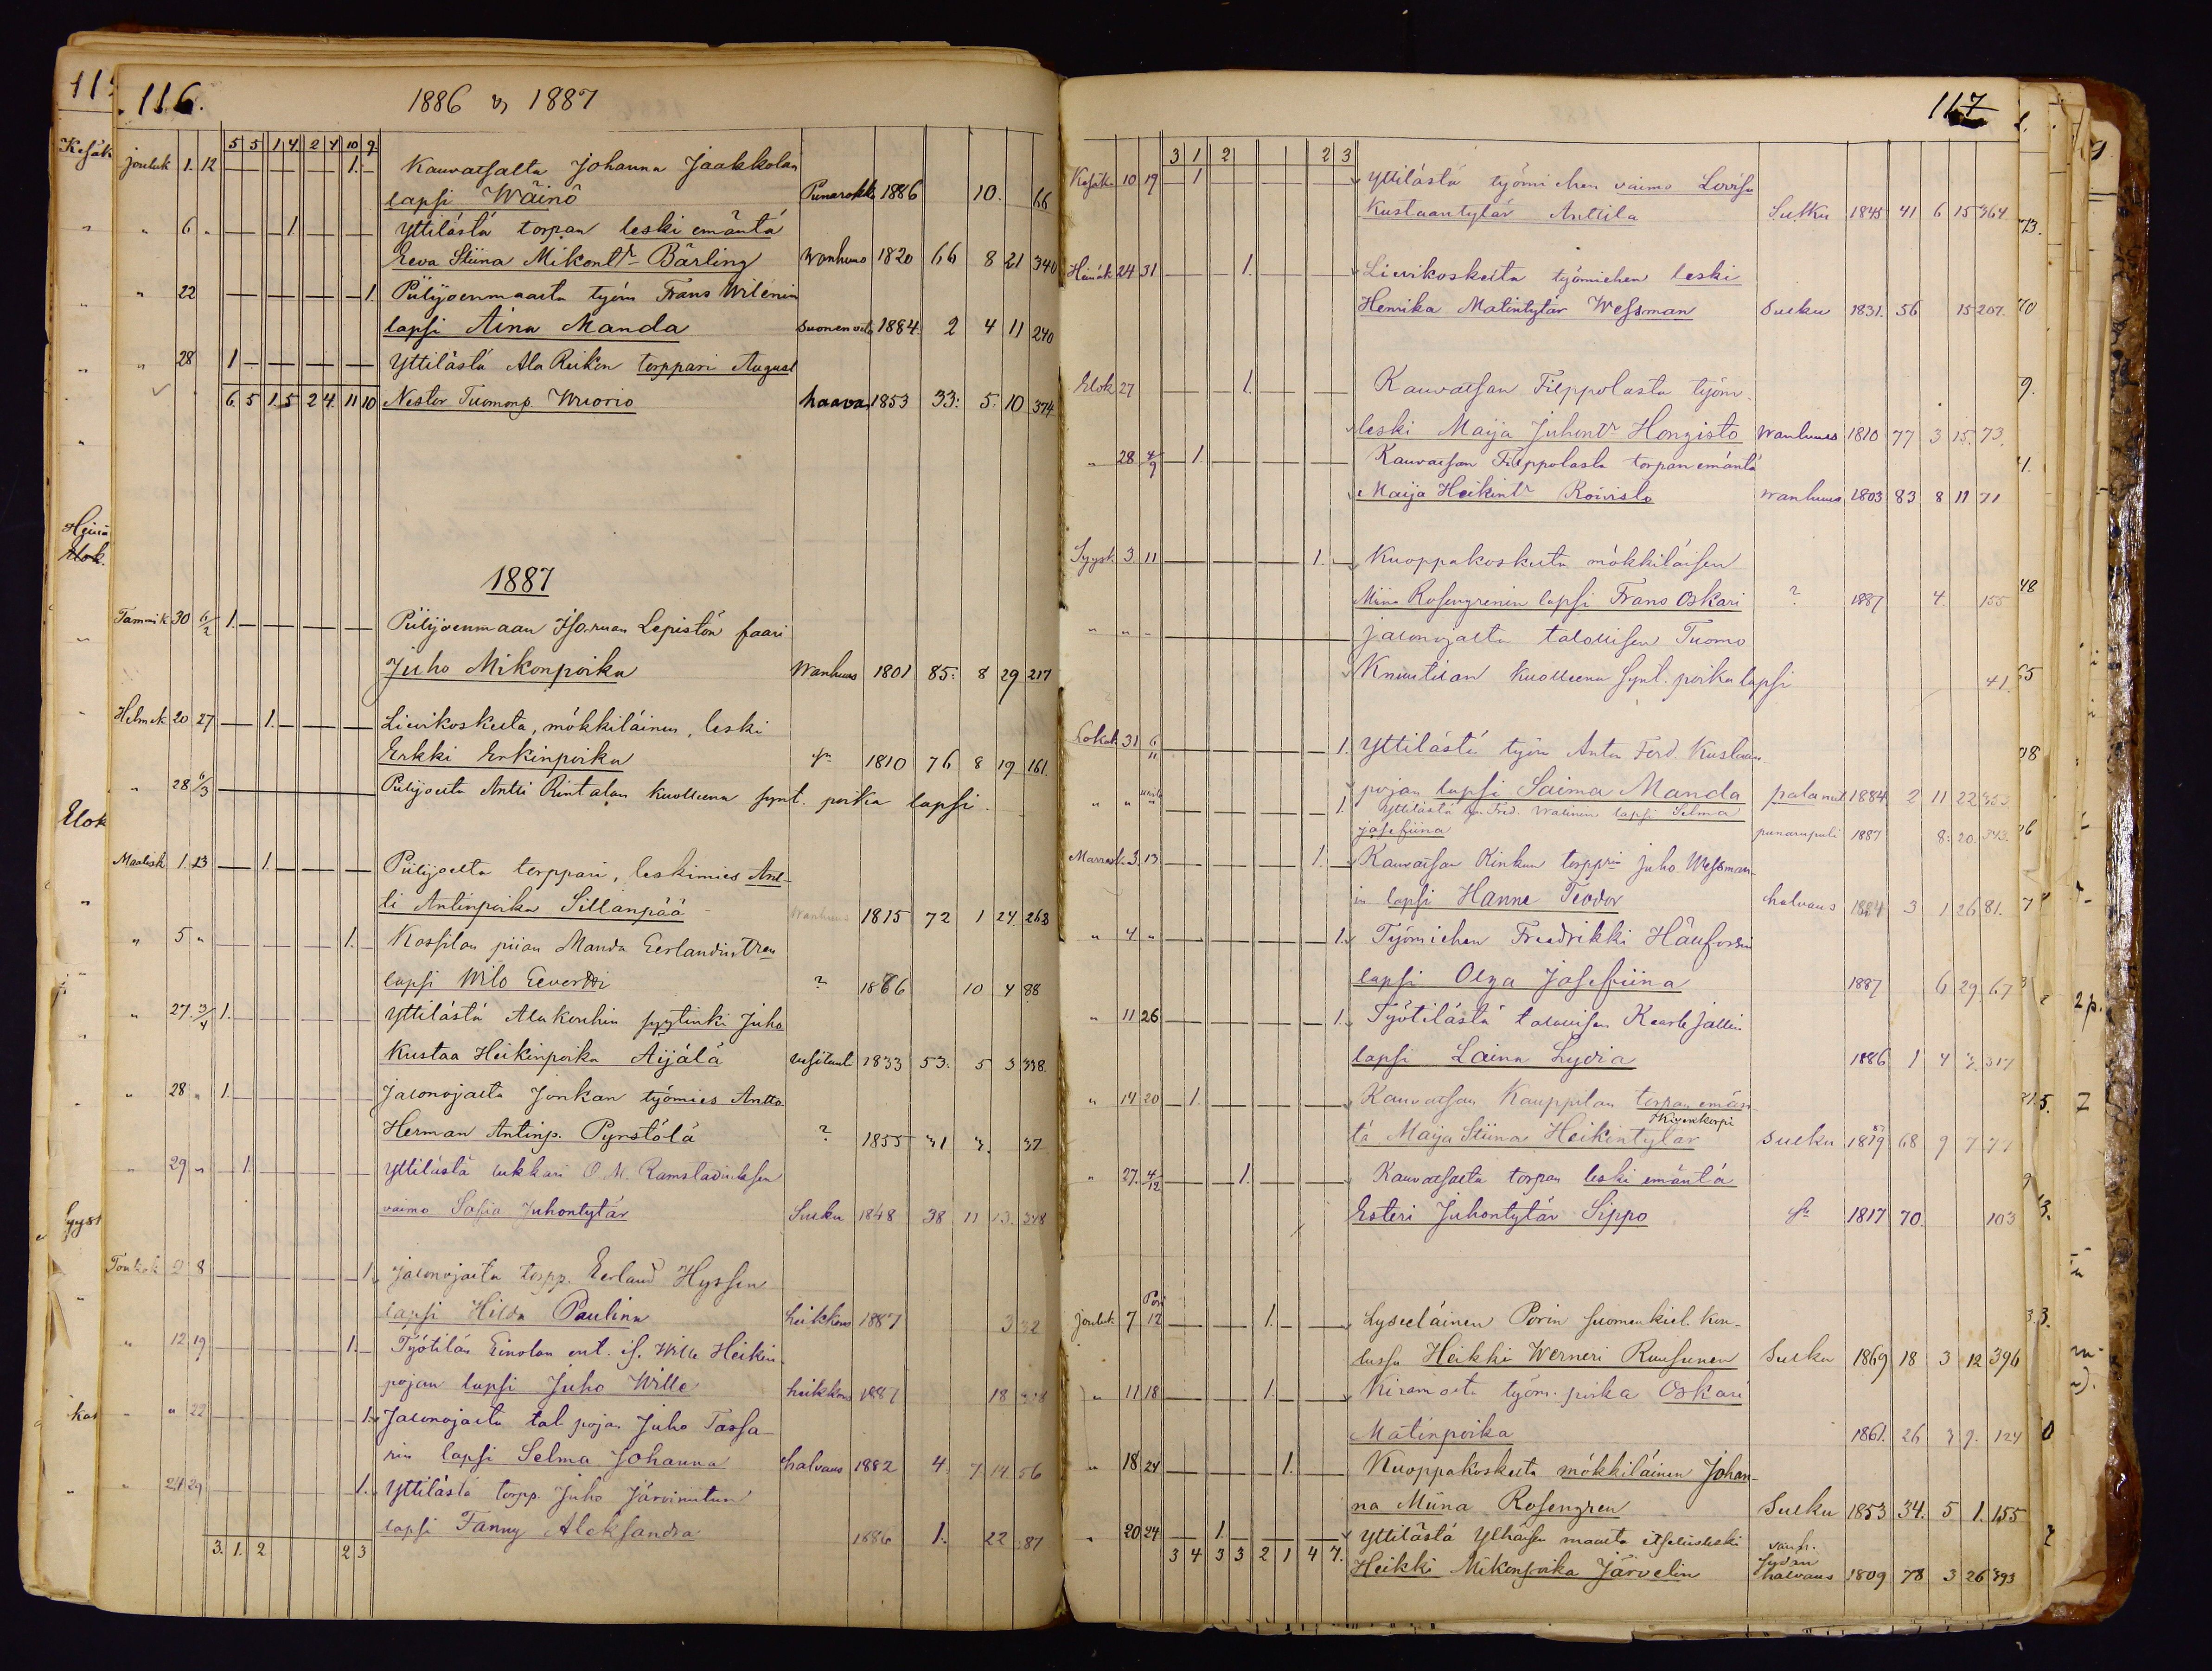 116.
1886 & 1887
5 5 1 4 2 4 10 9
Jouluk 1. 12 1. Kauvatsalta Johanna Jaakkolan
lapsi Wäinö Punarokko 1886 10. 66
" 6 " 1 Yttilästä torpan leski emäntä
Eeva Stiina Mikontr Bärling Wanhuus 1820 66 8 21 340
" 22 1 Piilijoenmaasta työm Frans Wilenin
lapsi Aina Manda 1884 2 4 11 240
" 28 1 Yttilästä Ala Reikon torppari August
6. 5 1. 5 2 4. 11 10 Nestor Tuomonp. Wuorio haava 1853 33: 5. 10 374
1887
Tammik 30 6/2 1. Piilijoenmaan Lepistön faari
Juho Mikonpoika Wanhuus 1801 85: 8 29 217
Helmik 20 27 1. Lievikoskelta, mökkiläinen, leski
Erkki Erkinpoika 1810 76 8 19 161.
" 28 6/3 Piilijoelta Antti Rintalan kuolleena synt. poika lapsi.
Maalisk 1. 13 1. Piilijoelta torppari, leskimies Ant-
ti Antinpoika Sillanpää Wanhuus 1815 72 1 24. 263
" 5 " 1. Kossilan piian Manda Eerlandintren
lapsi Wilo Eevertti ? 1886 10 4 88
" 27. 3/4 1. Yttilästä Alakouhin syytinki Juho
Kustaa Heikinpoika Äijälä 1833 53. 5 3 338.
" 28 " 1. Jalonojalta Jonkan työmies Antto
Herman Antinp. Pyrstölä ? 1855 31 3. 37
" 29 " 1. Yttilästä lukkari O. M. Ramstadiuksen
vaimo Sofia Juhontytär Sulku 1848 38 11 13. 348
Toukok 2 8 1. Jalonojalta torpp. Eerland Hyssen
lapsi Hilda Paulina heikkous 1887 3 32
" 12 19 1. Työtilän Einolan ent. is. Wille Heikin
pojan lapsi Juho Wille heikkous 1887 18
" " 22 1. Jalonojalta tal. pojan Juho Tassa-
rin lapsi Selma Johanna halvaus 1882 4. 7. 14 56
" 21 29 1. Yttilästä torpp. Juho Järvinitun
lapsi Fanny Aleksandra 1886 1. 22 87
3. 1. 2 2 3
117
3 1 2 2 3
Kesäk 10 19 1 Yttilästä työmiehen vaimo Lovisa
Kustaantytär Anttila Sulku 1845 41 6 15 364
Heinäk 24 31 1. Lievikoskelta työmiehen leski
Henrika Matintytär Wessman Sulku 1831. 56 15 207.
Elok 27 1. Kauvatsan Fileppolasta työm.
leski Maija Juhontr Hongisto Wanhuus 1810 77 3 15. 73.
" 28 4/9 1. Kauvatsan Fileppolasta torpan emäntä
Maija Heikintr Koivisto Wanhuus 1803 83 8 11 71
Syysk. 3. 11 1. Kuoppakoskelta mökkiläisen
Miina Rosengrenin lapsi Frans Oskari ? 1887 4. 155
" " " Jalonojalta talollisen Tuomo
Knuutilan kuolleena synt. poika lapsi 41.
Lokak 31 6/11 1. Yttilästä työm Anton Ferd. Kustaan-
pojan lapsi Saima Manda palanut 1884 2 11 22 353
" " 1. Yttilästä työm Fred. Walinin lapsi Selma
Josefiina punarupuli 1887 8: 20. 343.
Marrask. 3. 13 1. Kauvatsan Kinkun torpprin Juho Wessman-
in lapsi Hanne Teodor halvaus 1884 3 1 26 81.
" 4 " 1. Työmiehen Freedrikki Häuforsin
lapsi Olga Josefiina 1887 6 29. 67
" 11 26 1. Työtilästä talollisen Kaarle Jallin
lapsi Laina Lydia 1886 1 4 3. 317
" 14 20 1. Kauvatsan Kauppilan torpan emän-
tä Maija Stiina Heikintytär Kivenkorpi Sulku 1819 68 9 7 77
" 27. 4/12 1. Kauvatsalta torpan leski emäntä
Esteri Juhontytär Sippo 1817 70. 103
Jouluk 7 Pori 12 1. Lyseeläinen Porin suomenkiel. kou-
lussa Heikki Werneri Ruusunen Sulku 1869 18 3 12 396
" 11 18 1. Kiramosta työm. poika Oskari
Matinpoika 1861. 26 3 9. 124
" 18 24 1. Kuoppakoskelta mökkiläinen Johan-
na Miina Rosengren Sulku 1853 34. 5 1. 155
" 20 24 1. Yttilästä Ylhäisen maalta itsellisleski
3 4 3 3 2 1 4 7. Heikki Mikonpoika Järvelin vanh. sydän halvaus 1809 78 3 26 393